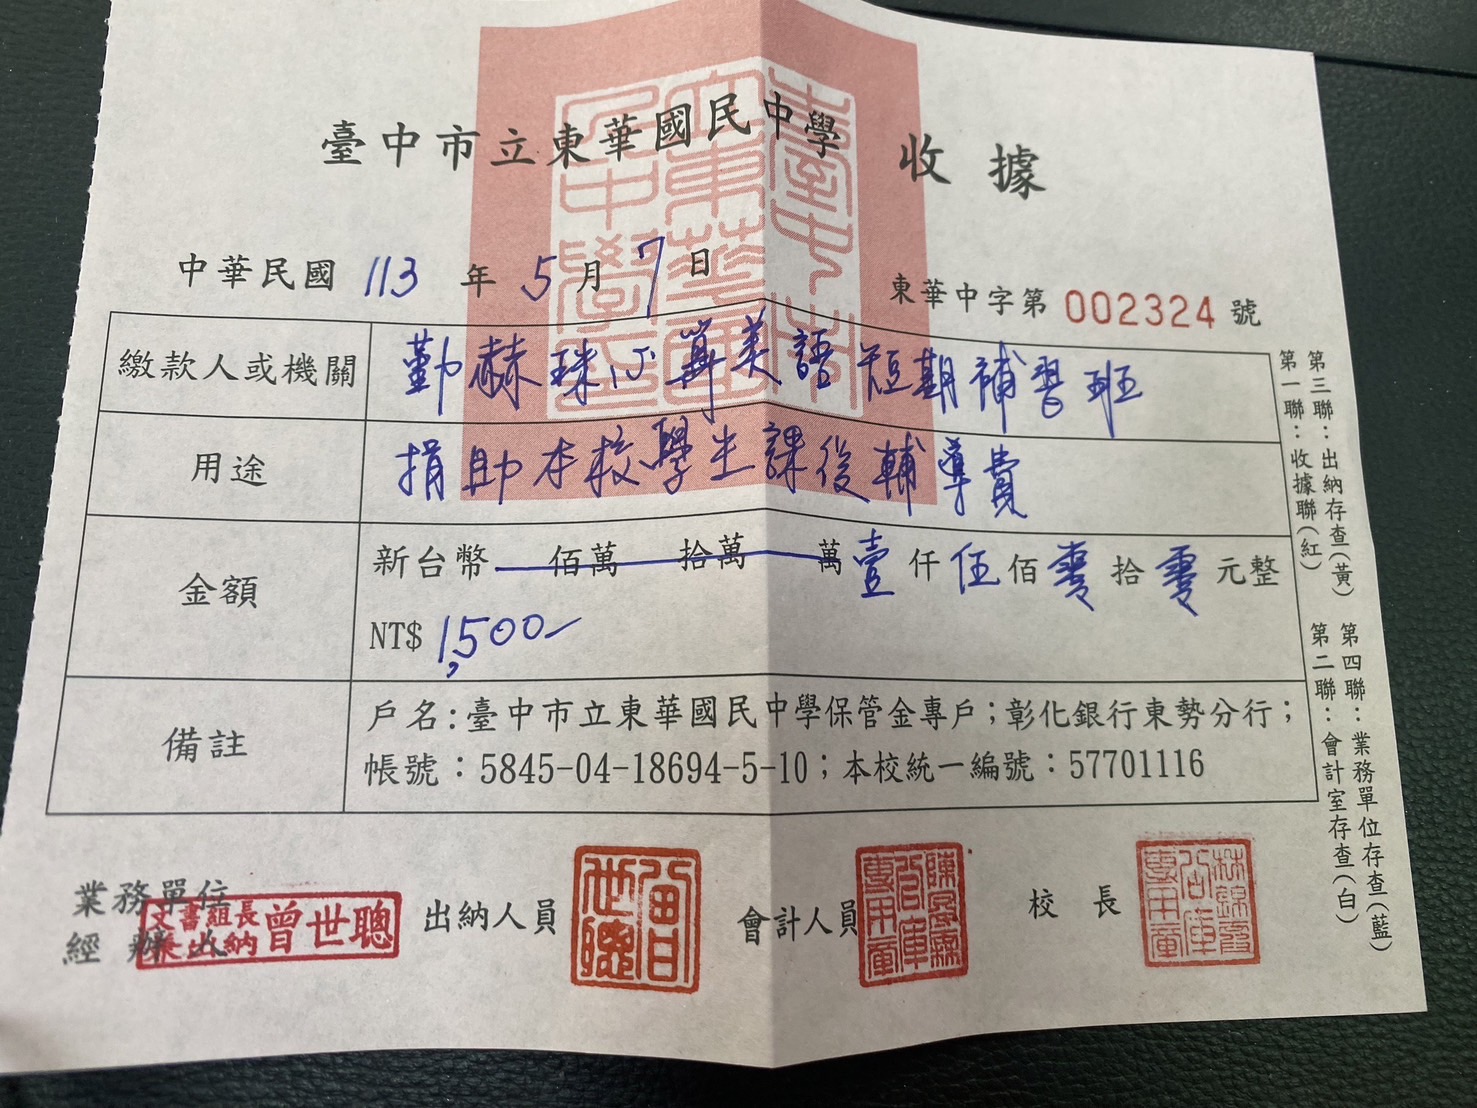 臺中市立東華國民中學 收據
中華民國 113 年 5 月 7 日
東華中字第 002324 號
繳款人或機關 勤赫珠心算美語短期補習班
用途 捐助本校學生課後輔導費
金額 新台幣 佰萬 拾萬 萬 壹 仟 伍 佰 零 拾 零 元整
NT$ 1,500
備註 戶名:臺中市立東華國民中學保管金專戶;彰化銀行東勢分行;
帳號:5845-04-18694-5-10;本校統一編號:57701116
第一聯:收據聯(紅) 第二聯:會計室存查(白)
第三聯:出納存查(黃) 第四聯:業務單位存查(藍)
業務單位
經辦人
文書組長
曾世聰
出納人員
會計人員
校長